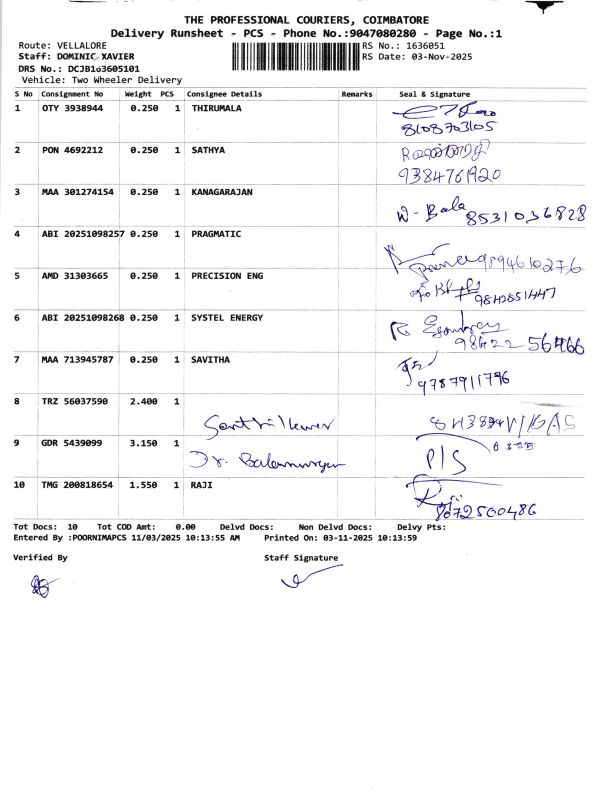 THE PROFESSIONAL COURIERS, COIMBATORE
Delivery Runsheet - PCS - Phone No.:9047080280 - Page No.:1
Route: VELLALORE RS No.: 1636051
Staff: DOMINIC XAVIER RS Date: 03-Nov-2025
DRS No.: DCJB163605101
Vehicle: Two Wheeler Delivery
S No Consignment No Weight PCS Consignee Details Remarks Seal & Signature
1 OTY 3938944 0.250 1 THIRUMALA
8108703105
2 PON 4692212 0.250 1 SATHYA
9384761920
3 MAA 301274154 0.250 1 KANAGARAJAN
W - Bala 8531036828
4 ABI 20251098257 0.250 1 PRAGMATIC
9894610276
5 AMD 31303665 0.250 1 PRECISION ENG
9842851447
6 ABI 20251098268 0.250 1 SYSTEL ENERGY
98422 56466
7 MAA 713945787 0.250 1 SAVITHA
9787911796
8 TRZ 56037590 2.400 1
Santhilkumar
9 GDR 5439099 3.150 1
Dr. Balamurugan P/S
10 TMG 200818654 1.550 1 RAJI
Raji
8072500486
Tot Docs: 10 Tot COD Amt: 0.00 Delvd Docs: Non Delvd Docs: Delvy Pts:
Entered By :POORNIMAPCS 11/03/2025 10:13:55 AM Printed On: 03-11-2025 10:13:59
Verified By Staff Signature